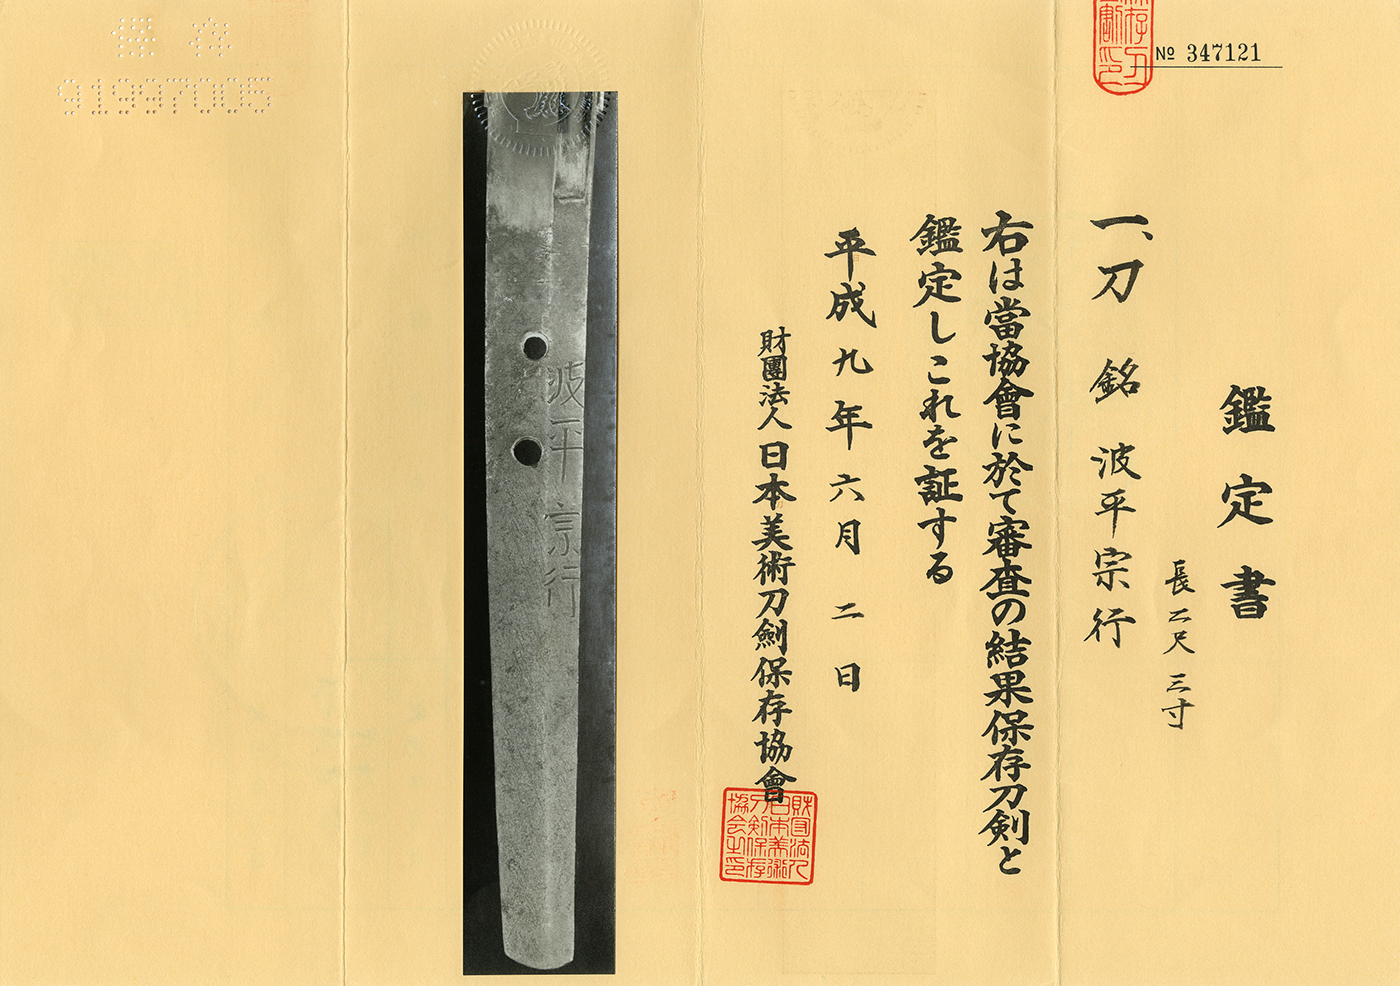 № 347121
鑑定書
長二尺三寸
一、刀 銘 波平宗行
右は當協會に於て審査の結果保存刀剣と
鑑定しこれを証する
平成九年六月二日
財團法人日本美術刀劍保存協會
財団法人
日本美術
刀剣保存
協会之印
波平宗行
保存
91997005